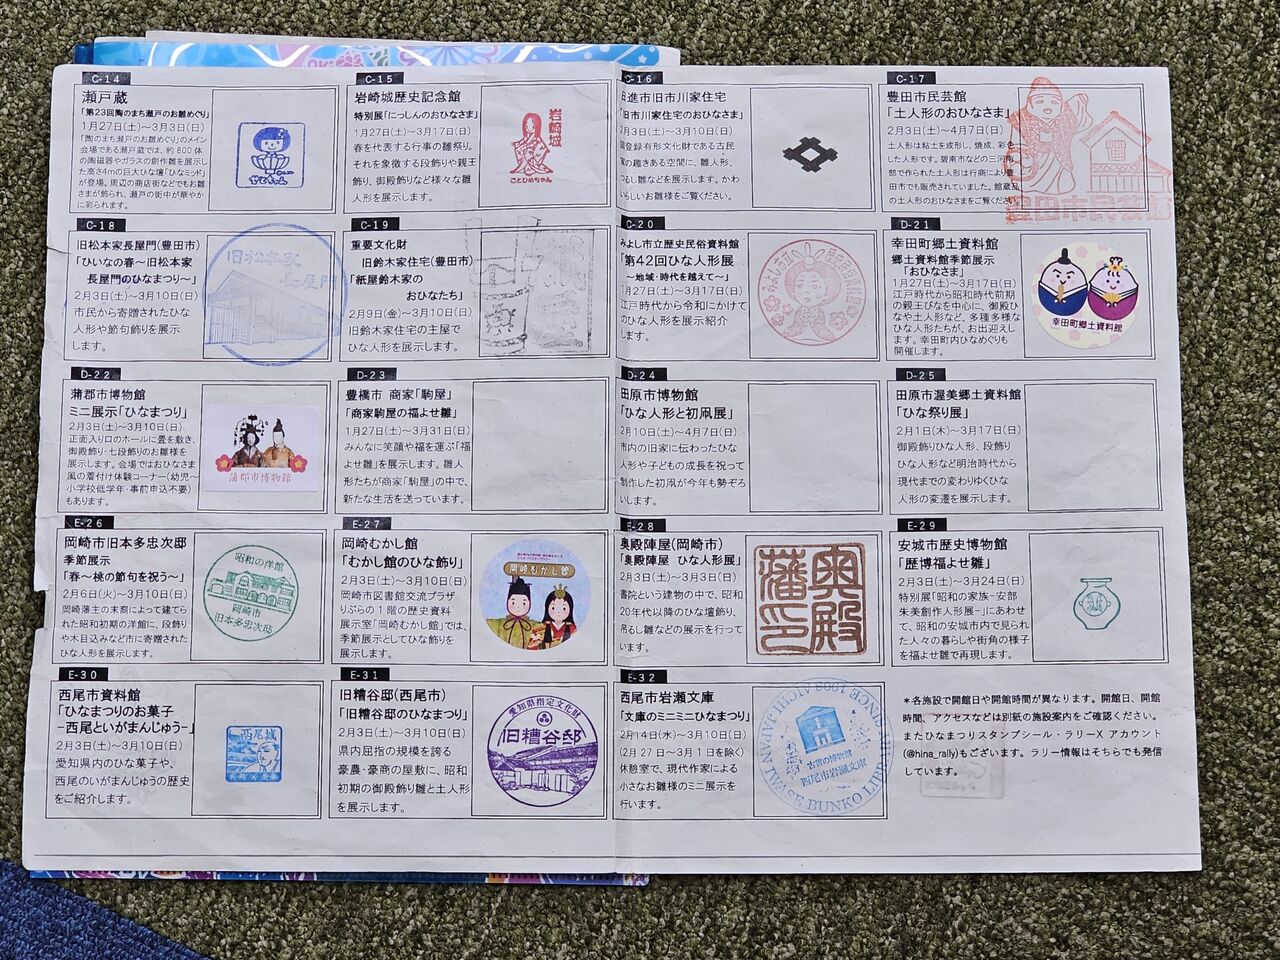 C-14
瀬戸蔵
「第23回陶のまち瀬戸のお雛めぐり」
1月27日(土)～3月3日(日)
「陶のまち瀬戸のお雛めぐり」のメイン
会場である瀬戸蔵では、約800体
の陶磁器やガラスの創作雛を展示し
た高さ4mの巨大ひな壇「ひなミッド」
が登場。周辺の商店街などでもお雛
さまが飾られ、瀬戸の街中が華やか
に彩られます。
せとちゃん
C-15
岩崎城歴史記念館
特別展「にっしんのおひなさま」
1月27日(土)～3月17日(日)
春を代表する行事の雛祭り。
それを象徴する段飾りや親王
飾り、御殿飾りなど様々な雛
人形を展示します。
岩崎城
ことひめちゃん
C-16
日進市旧市川家住宅
「旧市川家住宅のおひなさま」
2月3日(土)～3月10日(日)
国登録有形文化財である古民
家の趣きある空間に、雛人形、
つるし雛などを展示します。かわ
いらしいお雛様をご覧ください。
C-17
豊田市民芸館
「土人形のおひなさま」
2月3日(土)～4月7日(日)
土人形は粘土を成形し、焼成、彩色
した人形です。碧南市などの三河南
部で作られた土人形は行商により豊
田市でも販売されていました。館蔵品
の土人形のおひなさまをご覧ください
豊田市民芸館
C-18
旧松本家長屋門(豊田市)
「ひいなの春～旧松本家
長屋門のひなまつり～」
2月3日(土)～3月10日(日)
市民から寄贈されたひな
人形や節句飾りを展示
します。
旧松本家
長屋門
C-19
重要文化財
旧鈴木家住宅(豊田市)
「紙屋鈴木家の
おひなたち」
2月9日(金)～3月10日(日)
旧鈴木家住宅の主屋で
ひな人形を展示します。
C-20
みよし市立歴史民俗資料館
「第42回ひな人形展
～地域・時代を越えて～」
1月27日(土)～3月17日(日)
江戸時代から令和にかけて
のひな人形を展示紹介
します。
みよし市立歴史民俗資料館
D-21
幸田町郷土資料館
郷土資料館季節展示
「おひなさま」
1月27日(土)～3月17日(日)
江戸時代から昭和時代前期
の親王びなを中心に、御殿ひ
なや土人形など、多種多様な
ひな人形たちが、お出迎えし
ます。幸田町内ひなめぐりも
開催します。
幸田町郷土資料館
D-22
蒲郡市博物館
ミニ展示「ひなまつり」
2月3日(土)～3月10日(日)
正面入り口のホールに畳を敷き、
御殿飾り・七段飾りのお雛様を
展示します。会場ではおひなさま
風の着付け体験コーナー(幼児～
小学校低学年・事前申込不要)
もあります。
蒲郡市博物館
D-23
豊橋市 商家「駒屋」
「商家駒屋の福よせ雛」
1月27日(土)～3月31日(日)
みんなに笑顔や福を運ぶ「福
よせ雛」を展示します。雛人
形たちが商家「駒屋」の中で、
新たな生活を送っています。
D-24
田原市博物館
「ひな人形と初凧展」
2月10日(土)～4月7日(日)
市内の旧家に伝わったひな
人形や子どもの成長を祝って
制作した初凧が今年も勢ぞろ
いします。
D-25
田原市渥美郷土資料館
「ひな祭り展」
2月1日(木)～3月17日(日)
御殿飾りひな人形、段飾り
ひな人形など明治時代から
現代までの変わりゆくひな
人形の変遷を展示します。
E-26
岡崎市旧本多忠次邸
季節展示
「春～桃の節句を祝う～」
2月6日(火)～3月10日(日)
岡崎藩主の末裔によって建てら
れた昭和初期の洋館に、段飾り
や木目込みなど市に寄贈された
ひな人形を展示します。
昭和の洋館
岡崎市
旧本多忠次邸
E-27
岡崎むかし館
「むかし館のひな飾り」
2月3日(土)～3月10日(日)
岡崎市図書館交流プラザ
りぶらの1階の歴史資料
展示室「岡崎むかし館」では、
季節展示としてひな飾りを
展示します。
岡崎むかし館
E-28
奥殿陣屋(岡崎市)
「奥殿陣屋 ひな人形展」
2月3日(土)～3月3日(日)
書院という建物の中で、昭和
20年代以降のひな壇飾り、
吊るし雛などの展示を行って
います。
奥殿
藩印
E-29
安城市歴史博物館
「歴博福よせ雛」
2月3日(土)～3月24日(日)
特別展「昭和の家族-安部
朱美創作人形展-」にあわせ
て、昭和の安城市内で見られ
た人々の暮らしや街角の様子
を福よせ雛で再現します。
E-30
西尾市資料館
「ひなまつりのお菓子
－西尾といがまんじゅう－」
2月3日(土)～3月10日(日)
愛知県内のひな菓子や、
西尾のいがまんじゅうの歴史
をご紹介します。
西尾城
E-31
旧糟谷邸(西尾市)
「旧糟谷邸のひなまつり」
2月3日(土)～3月10日(日)
県内屈指の規模を誇る
豪農・豪商の屋敷に、昭和
初期の御殿飾り雛と土人形
を展示します。
愛知県指定文化財
旧糟谷邸
E-32
西尾市岩瀬文庫
「文庫のミニミニひなまつり」
2月14日(水)～3月10日(日)
(2月27日～3月1日を除く)
休憩室で、現代作家による
小さなお雛様のミニ展示を
行います。
SINCE 1908 AICHI JAPAN
古書の博物館
西尾市岩瀬文庫
IWASE BUNKO LIBRARY
*各施設で開館日や開館時間が異なります。開館日、開館
時間、アクセスなどは別紙の施設案内をご確認ください。
またひなまつりスタンプシール・ラリーX アカウント
(@hina_rally)もございます。ラリー情報はそちらでも発信
しています。